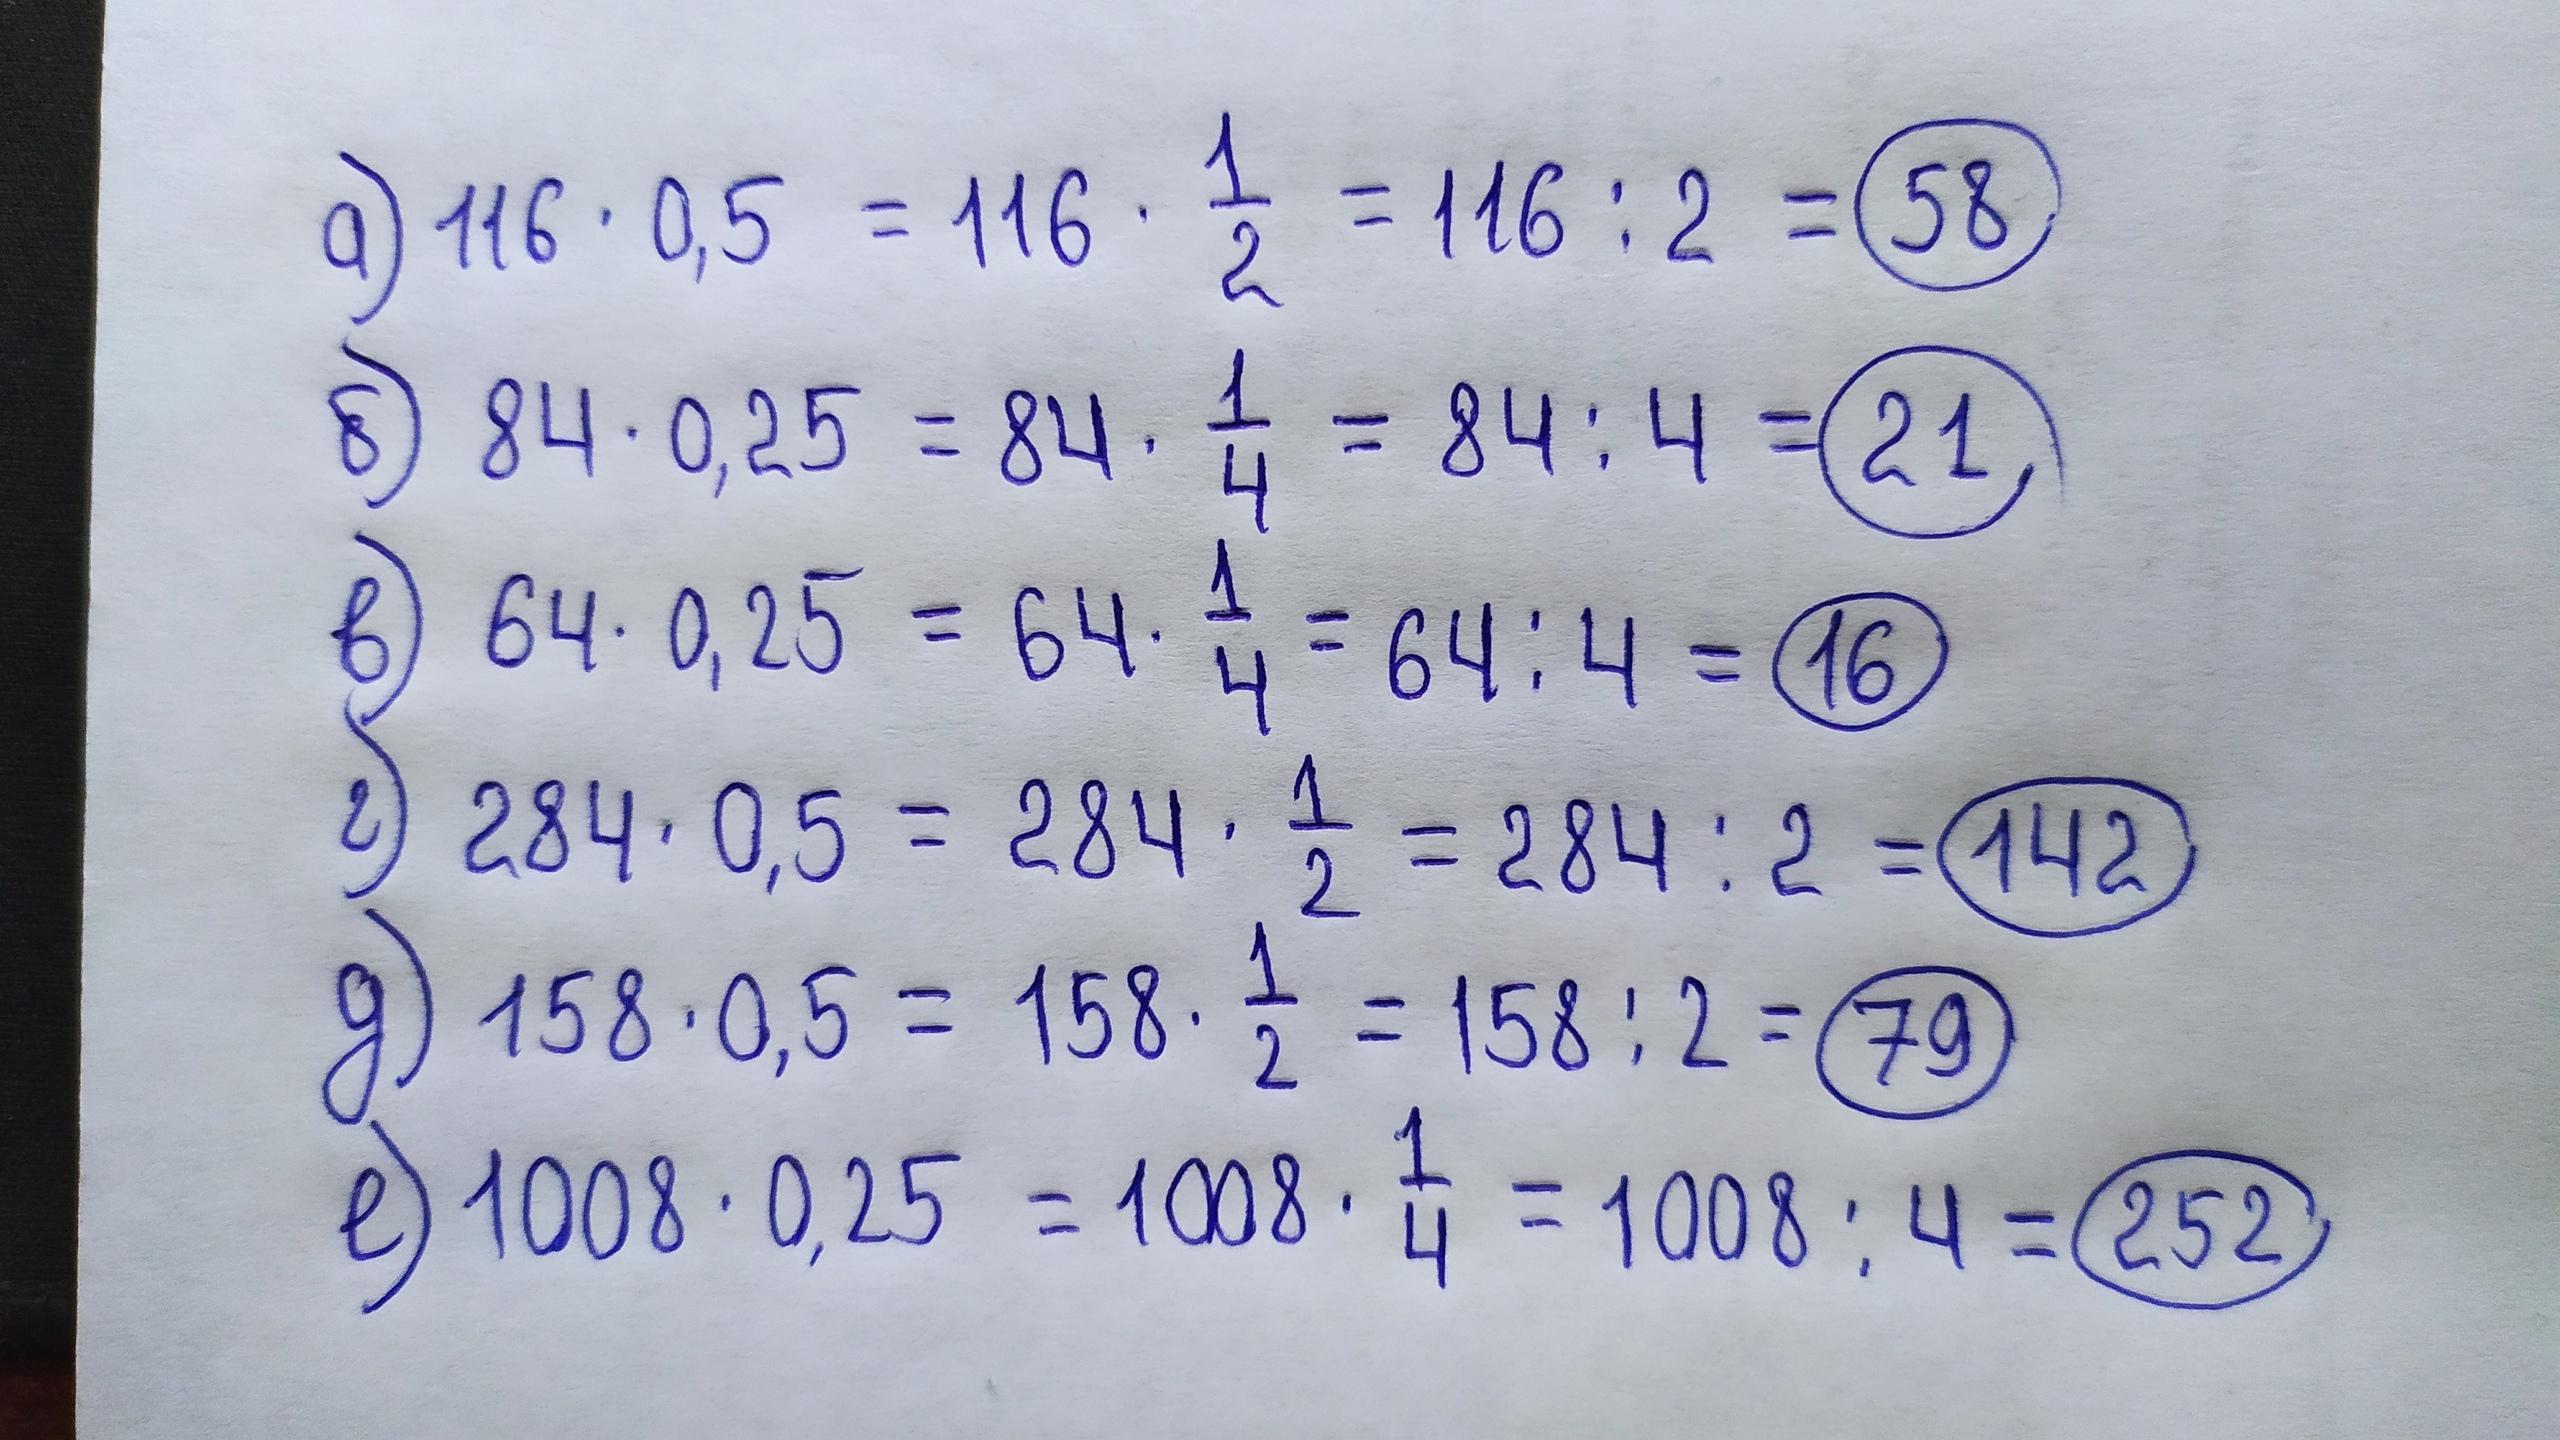 а) 116 · 0,5 = 116 · 1/2 = 116 : 2 = 58
б) 84 · 0,25 = 84 · 1/4 = 84 : 4 = 21
в) 64 · 0,25 = 64 · 1/4 = 64 : 4 = 16
г) 284 · 0,5 = 284 · 1/2 = 284 : 2 = 142
д) 158 · 0,5 = 158 · 1/2 = 158 : 2 = 79
е) 1008 · 0,25 = 1008 · 1/4 = 1008 : 4 = 252